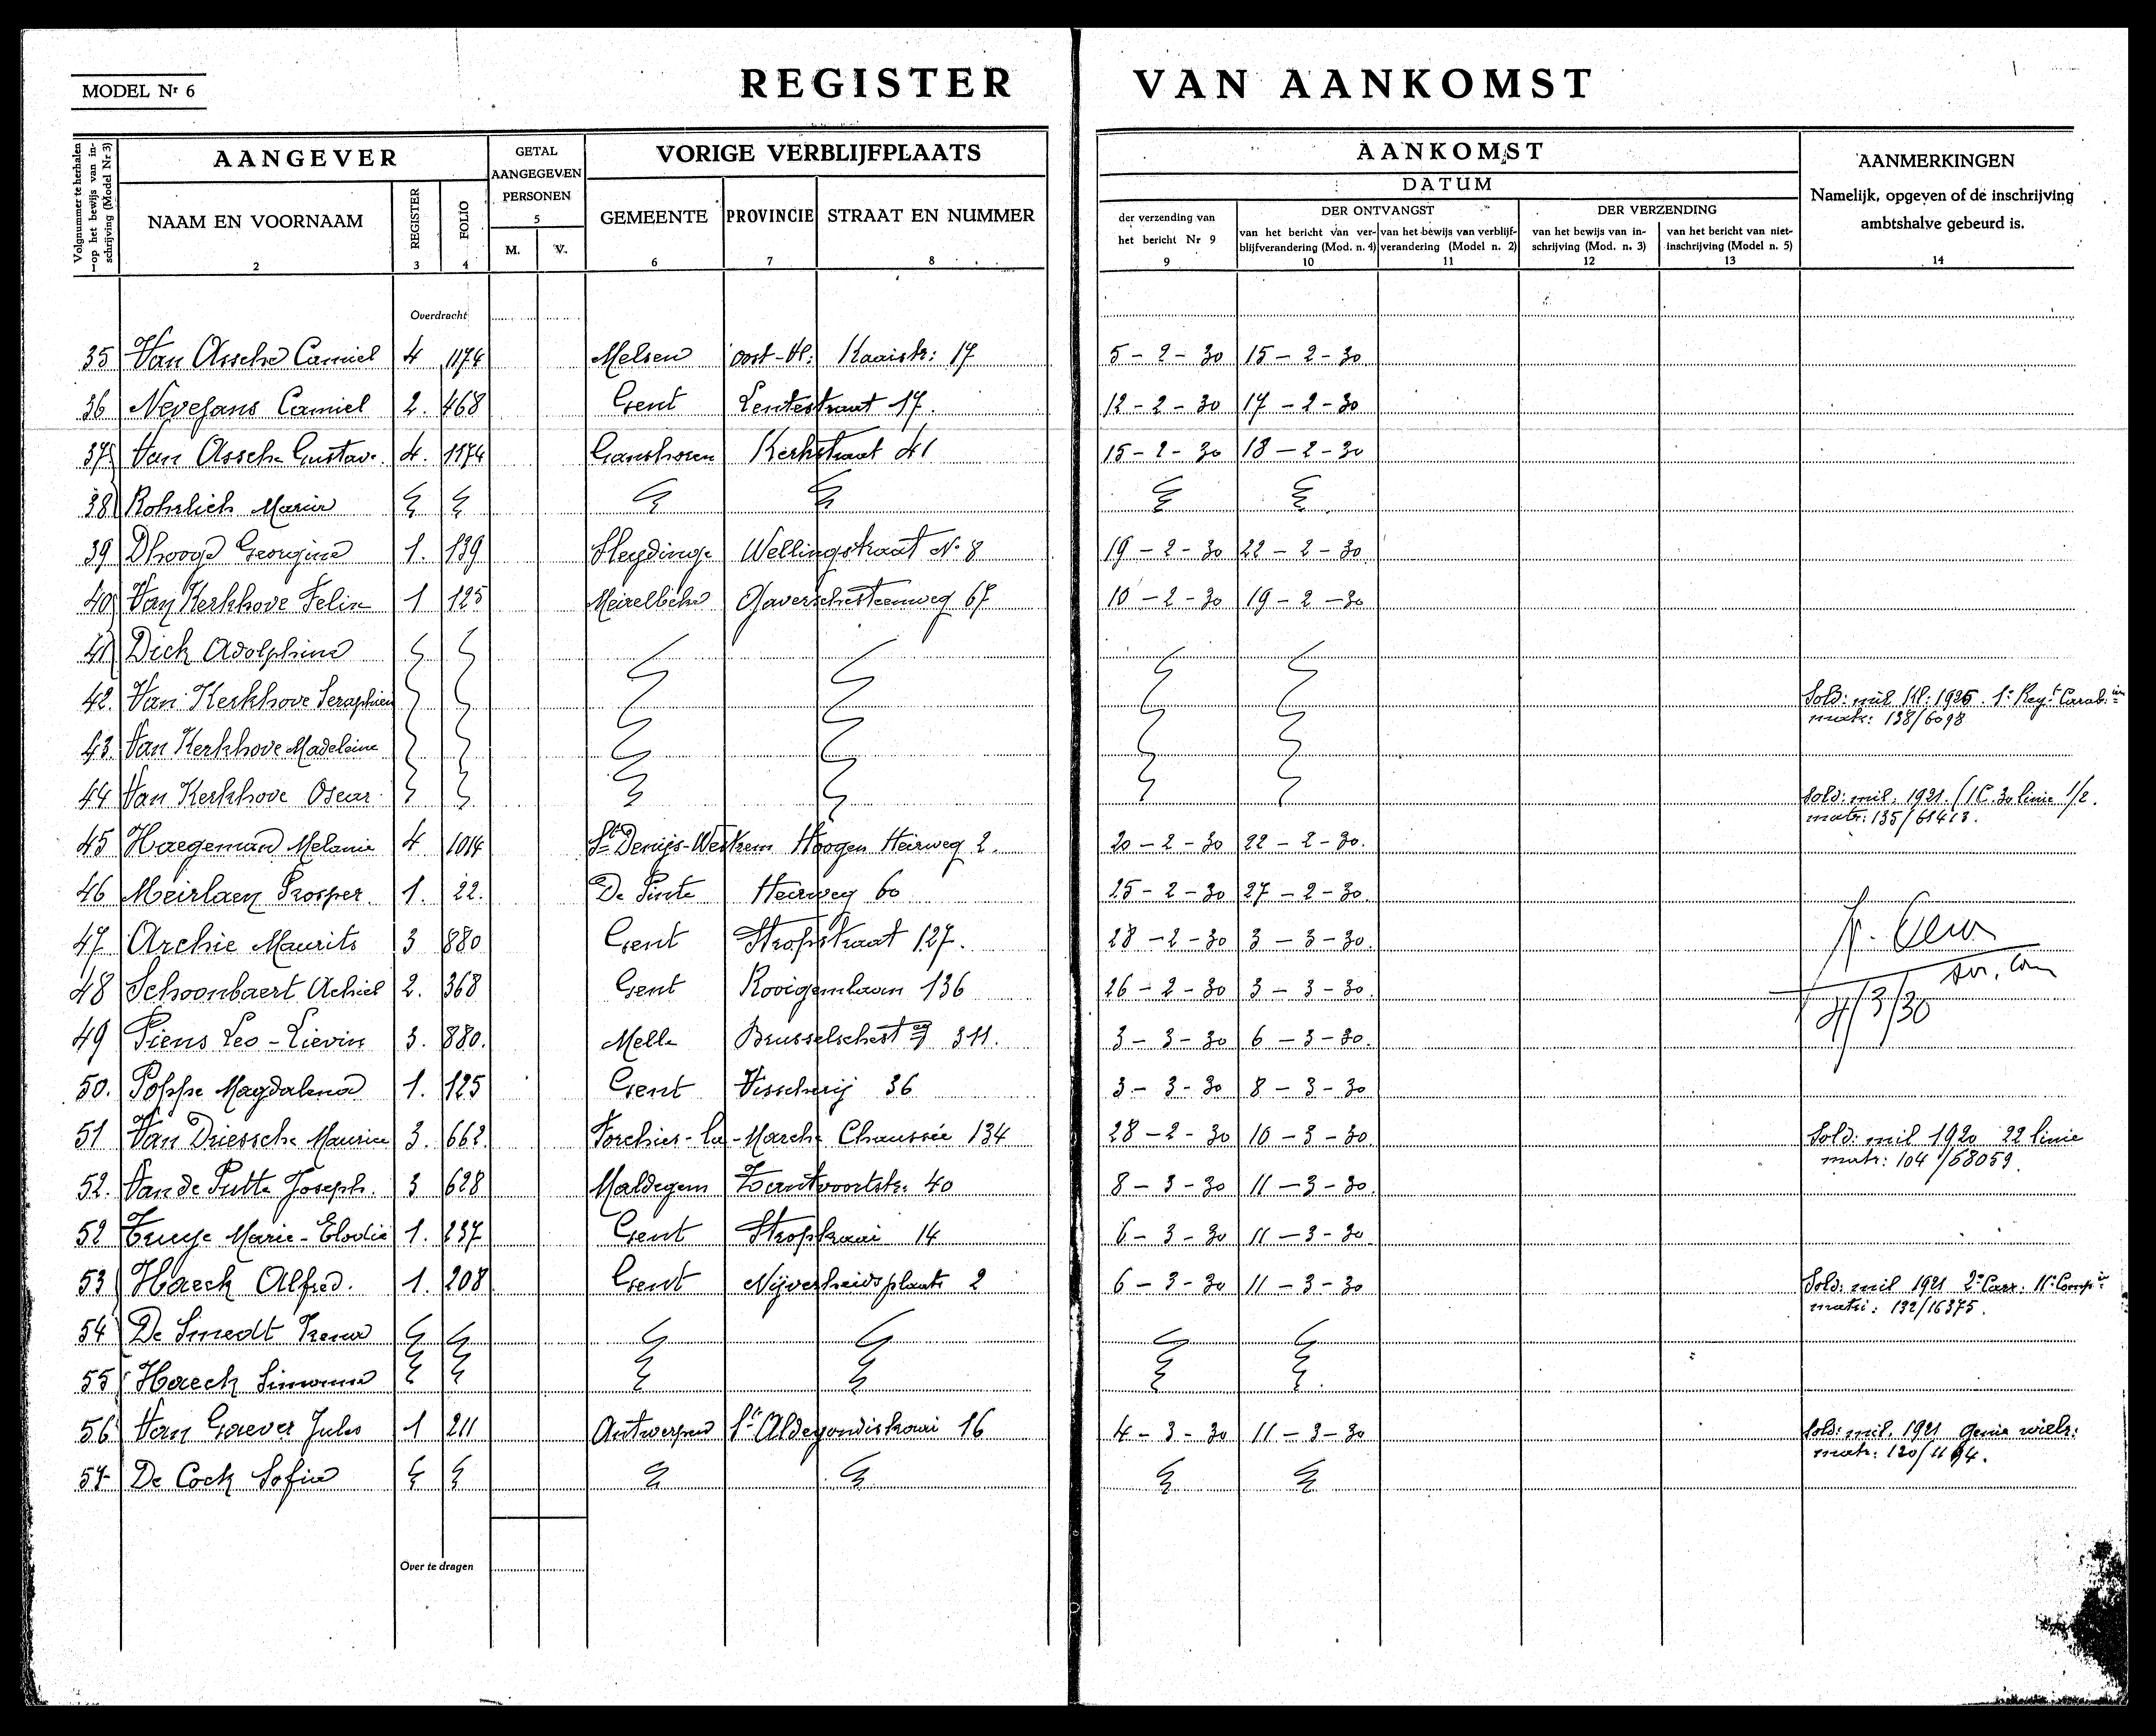 MODEL Nr 6
REGISTER VAN AANKOMST
Volgnummer te herhalen op het bewijs van inschrijving (Model Nr 3)
AANGEVER
NAAM EN VOORNAAM
2
REGISTER
3
FOLIO
4
GETAL
AANGEGEVEN
PERSONEN
5
M. V.
VORIGE VERBLIJFPLAATS
GEMEENTE
6
PROVINCIE
7
STRAAT EN NUMMER
8
AANKOMST
DATUM
der verzending van
het bericht Nr 9
9
DER ONTVANGST
van het bericht van ver-
blijfverandering (Mod. n. 4)
10
van het bewijs van verblijf-
verandering (Model n. 2)
11
DER VERZENDING
van het bewijs van in-
schrijving (Mod. n. 3)
12
van het bericht van niet-
inschrijving (Model n. 5)
13
AANMERKINGEN
Namelijk, opgeven of de inschrijving
ambtshalve gebeurd is.
14
Overdracht
35 Van Assche Camiel 4 1174 Melsen Oost-Vl: Kaaistr: 17 5-2-30 15-2-30
36 Nevejans Camiel 2. 468 Gent Lentestraat 17. 12-2-30 17-2-30
37 Van Assche Gustav. 4. 1174 Ganshoren Kerkstraat 41 15-2-30 18-2-30
38 Rohrlich Maria
39 Dhooge Georgine 1. 139 Sleydinge Wellingstraat No 8 19-2-30 22-2-30
40 Van Kerkhove Felix 1 125 Meirelbeke Gaverschesteenweg 67 10-2-30 19-2-30
41 Dick Adolphine
42. Van Kerkhove Seraphien Sold: mil Kl: 1926. 1e Regt Carab:
matr: 138/6098
43. Van Kerkhove Madeleine
44 Van Kerkhove Oscar Sold: mil. 1921.
matr: 135/61413.
45 Haegeman Melanie 4 1014 St Denijs-Westrem Hoogen Heirweg 2. 20-2-30 22-2-30.
46 Meirlaen Prosper. 1. 22. De Pinte Heirweg 60 25-2-30 27-2-30.
47. Archie Maurits 3 880 Gent Stropstraat 127. 28-2-30 3-3-30.
48 Schoonbaert Achiel 2. 368 Gent Rooigemlaan 136 26-2-30 3-3-30.
4/3/30
49 Piens Leo-Lievin 3. 880. Melle Brusselschest 311. 3-3-30 6-3-30.
50. Poppe Magdalena 1. 125 Gent Visscherij 36 3-3-30 8-3-30
51 Van Driessche Maurice 3. 662. Forchies-la-Marche Chaussée 134 28-2-30 10-3-30 Sold: mil 1920 22 linie
matr: 104/58059.
52. Van de Putte Joseph. 3 628 Maldegem Zantvoortstr: 40 8-3-30 11-3-30.
52 Truye Marie-Elodie 1. 237 Gent Stropkaai 14 6-3-30 11-3-30
53 Haeck Alfred. 1. 208 Gent Nijverheidsplaats 2 6-3-30 11-3-30 Sold: mil 1921 2e Carr. 11e Compie
matr: 132/16375.
54 De Smedt Irena
55 Haeck Simonna
56 Van Gaever Jules 1 211 Antwerpen St Aldegondiskaai 16 4-3-30 11-3-30 Sold: mil. 1921 Genie wielr:
57 De Cock Sofia
Over te dragen